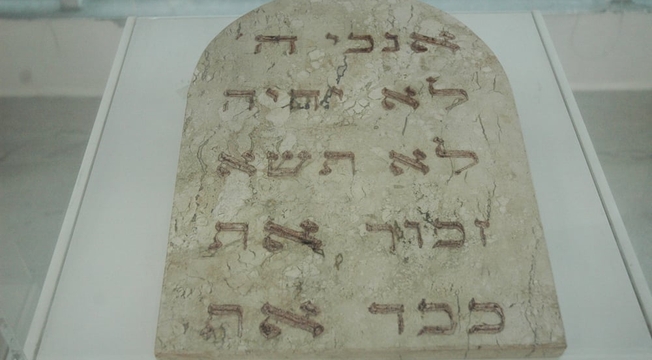 אנכי ה
לא יהיה
לא תשא
זכור את
כבד את